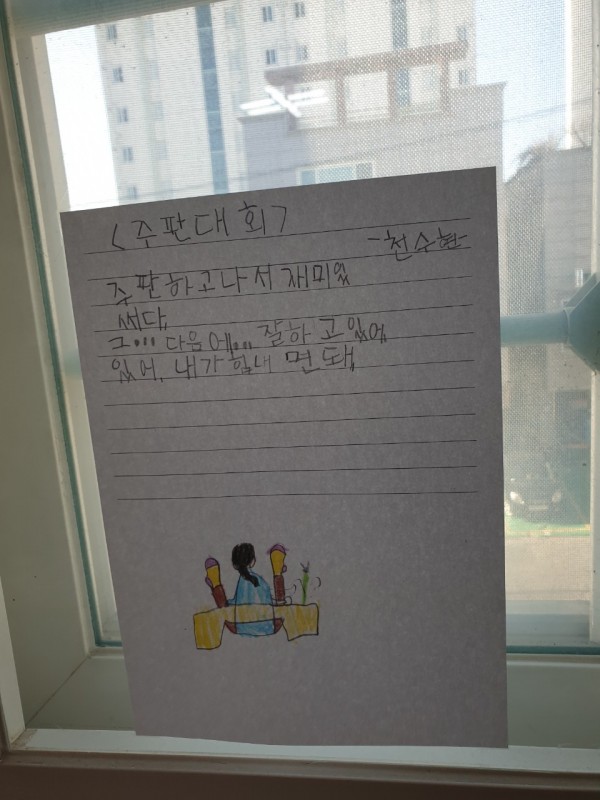 <주판대회>
-천수현-
주판하고나서 재미있
써다.
그... 다음에... 잘하고있어,
있어, 내가힘내면돼,